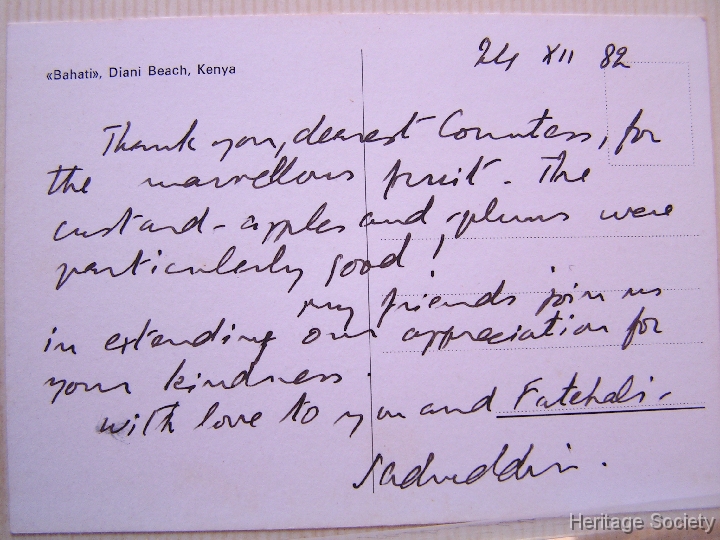 «Bahati», Diani Beach, Kenya
24 XII 82
Thank you, dearest Countess, for
the marvellous fruit. The
custard-apples and -plums were
particularly good!
my friends join us
in extending our appreciation for
your kindness.
with love to you and Fatehali.
Sadruddin.
Heritage Society